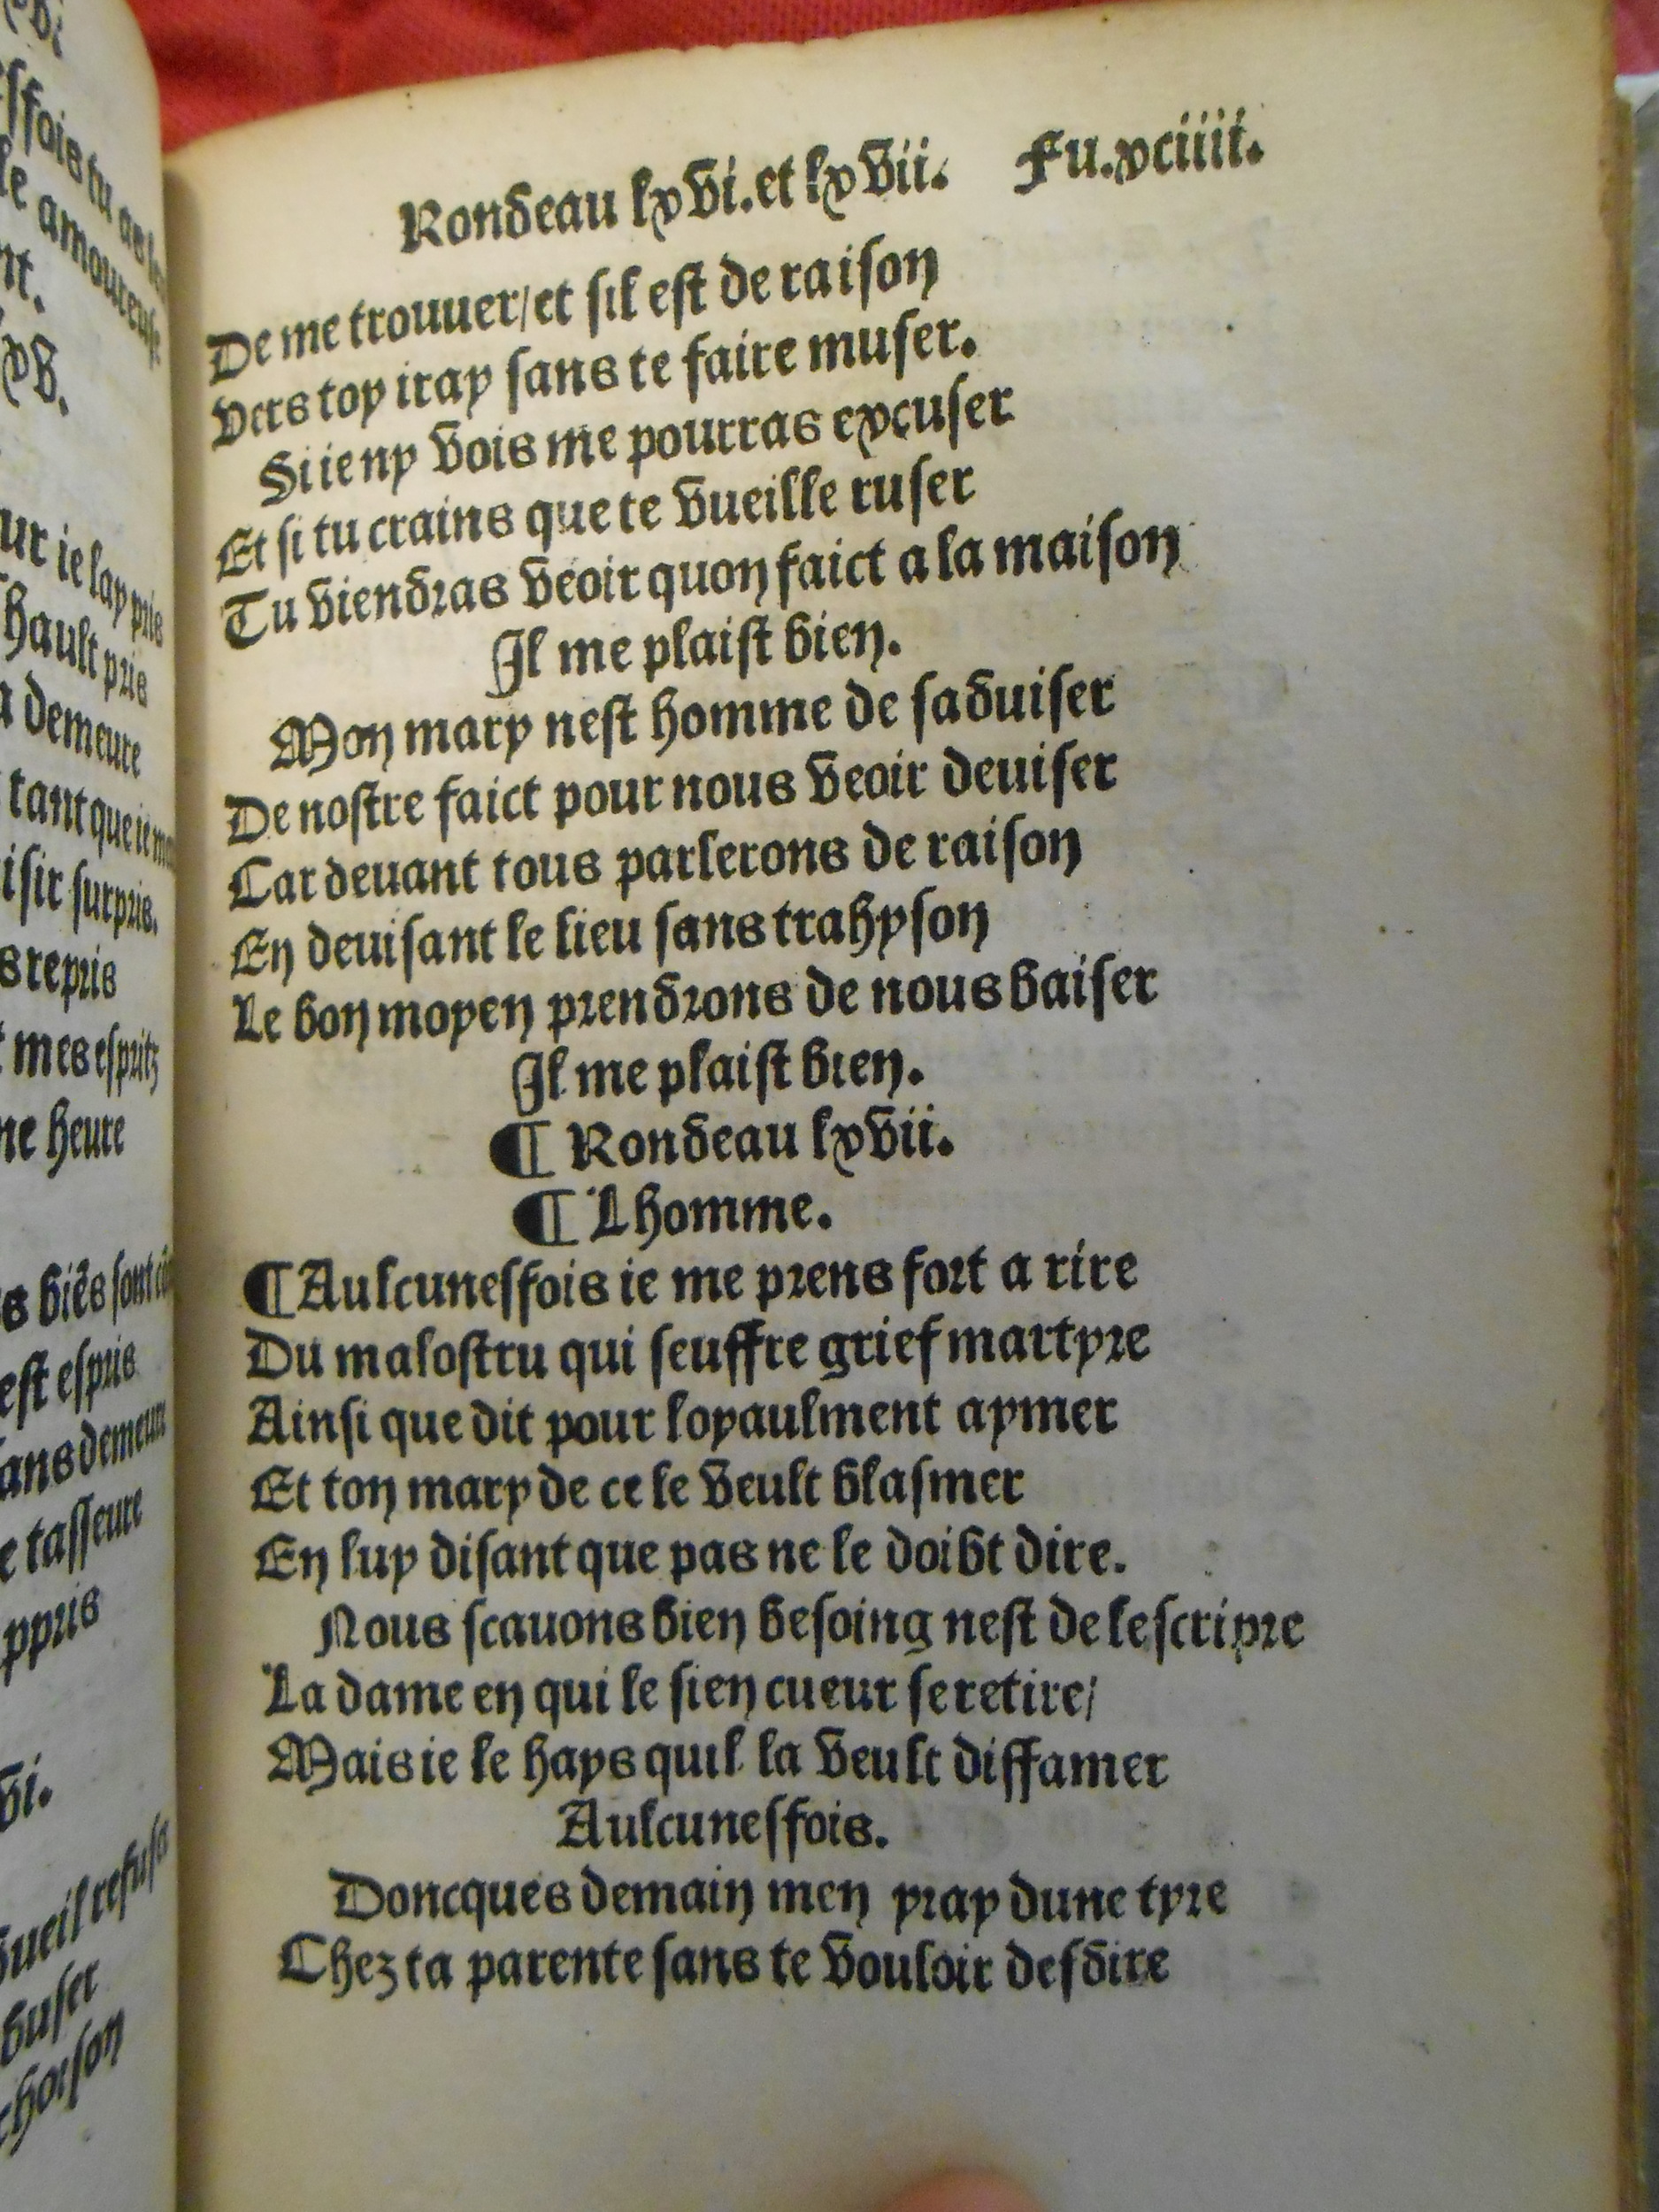 Rondeau lxvi. et lxvii. Fu. xciiii.
De me trouuer/et sil est de raison
Vers toy iray sans te faire muser.
Si ie ny vois me pourras excuser
Et si tu crains que te vueille ruser
Tu viendras veoir quon faict a la maison
Il me plaist bien.
Mon mary nest homme de saduiser
De nostre faict pour nous veoir deuiser
Car deuant tous parlerons de raison
En deuisant le lieu sans trahyson
Le bon moyen prendrons de nous baiser
Il me plaist bien.
¶ Rondeau lxvii.
¶ Lhomme.
¶ Aulcunesfois ie me prens fort a rire
Du malostru qui seuffre grief martyre
Ainsi que dit pour loyaulment aymer
Et ton mary de ce le veult blasmer
En luy disant que pas ne le doibt dire.
Nous scauons bien besoing nest de lescripre
La dame en qui le sien cueur se retire/
Mais ie le hays quil la veult diffamer
Aulcunesfois.
Doncques demain men yray dune tyre
Chez ta parente sans te vouloir desdire